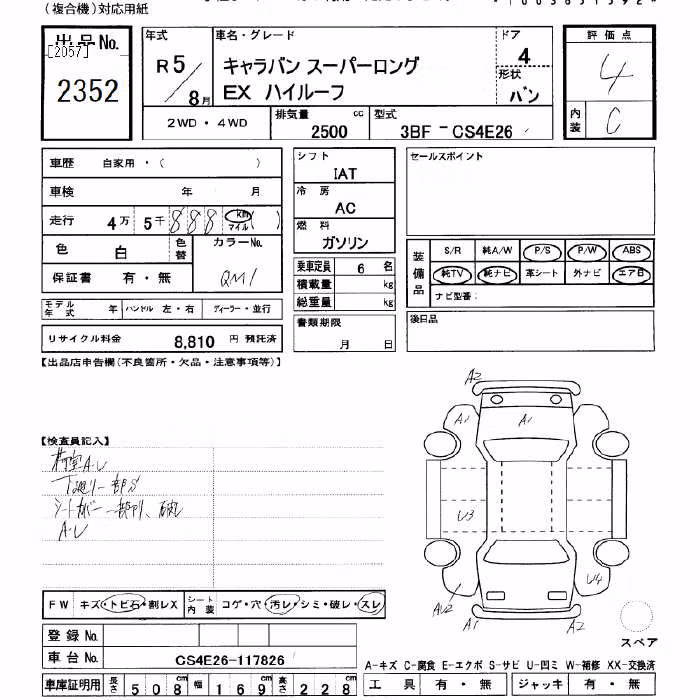 (複合機)対応用紙
出品No.
[2057]
2352
年式
R5/8月
車名・グレード
キャラバン スーパーロング
EX ハイルーフ
ドア
4
形状
バン
評価点
4
内装
C
2WD・4WD
排気量
2500 cc
型式
3BF -CS4E26
車歴 自家用・( )
車検 年 月
走行 4万 5千 888 km マイル ( )
色 白 色替 カラーNo.
QM1
保証書 有・無
モデル年式 年 ハンドル 左・右 ディーラー・並行
リサイクル料金 8,810 円 預託済
シフト
IAT
冷房
AC
燃料
ガソリン
乗車定員 6 名
積載量 kg
総重量 kg
書類期限
月 日
セールスポイント
装備品
S/R 純A/W P/S P/W ABS
純TV 純ナビ 革シート 外ナビ エアB
ナビ型番:
後日品
【出品店申告欄(不良箇所・欠品・注意事項等)】
【検査員記入】
荷室A.U
下廻り一部S
シートカバー一部切り、破れ
A.U
A2
A1
A1
U3
U4
AU2
A1
A2
スペア
FW キズ・トビ石・割レX シート内装 コゲ・穴・汚レ・シミ・破レ・スレ
登録No.
車台No. CS4E26-117826
A-キズ C-腐食 E-エクボ S-サビ U-凹ミ W-補修 XX-交換済
車庫証明用 長さ 508cm 幅 169cm 高さ 228cm
工具 有・無 ジャッキ 有・無